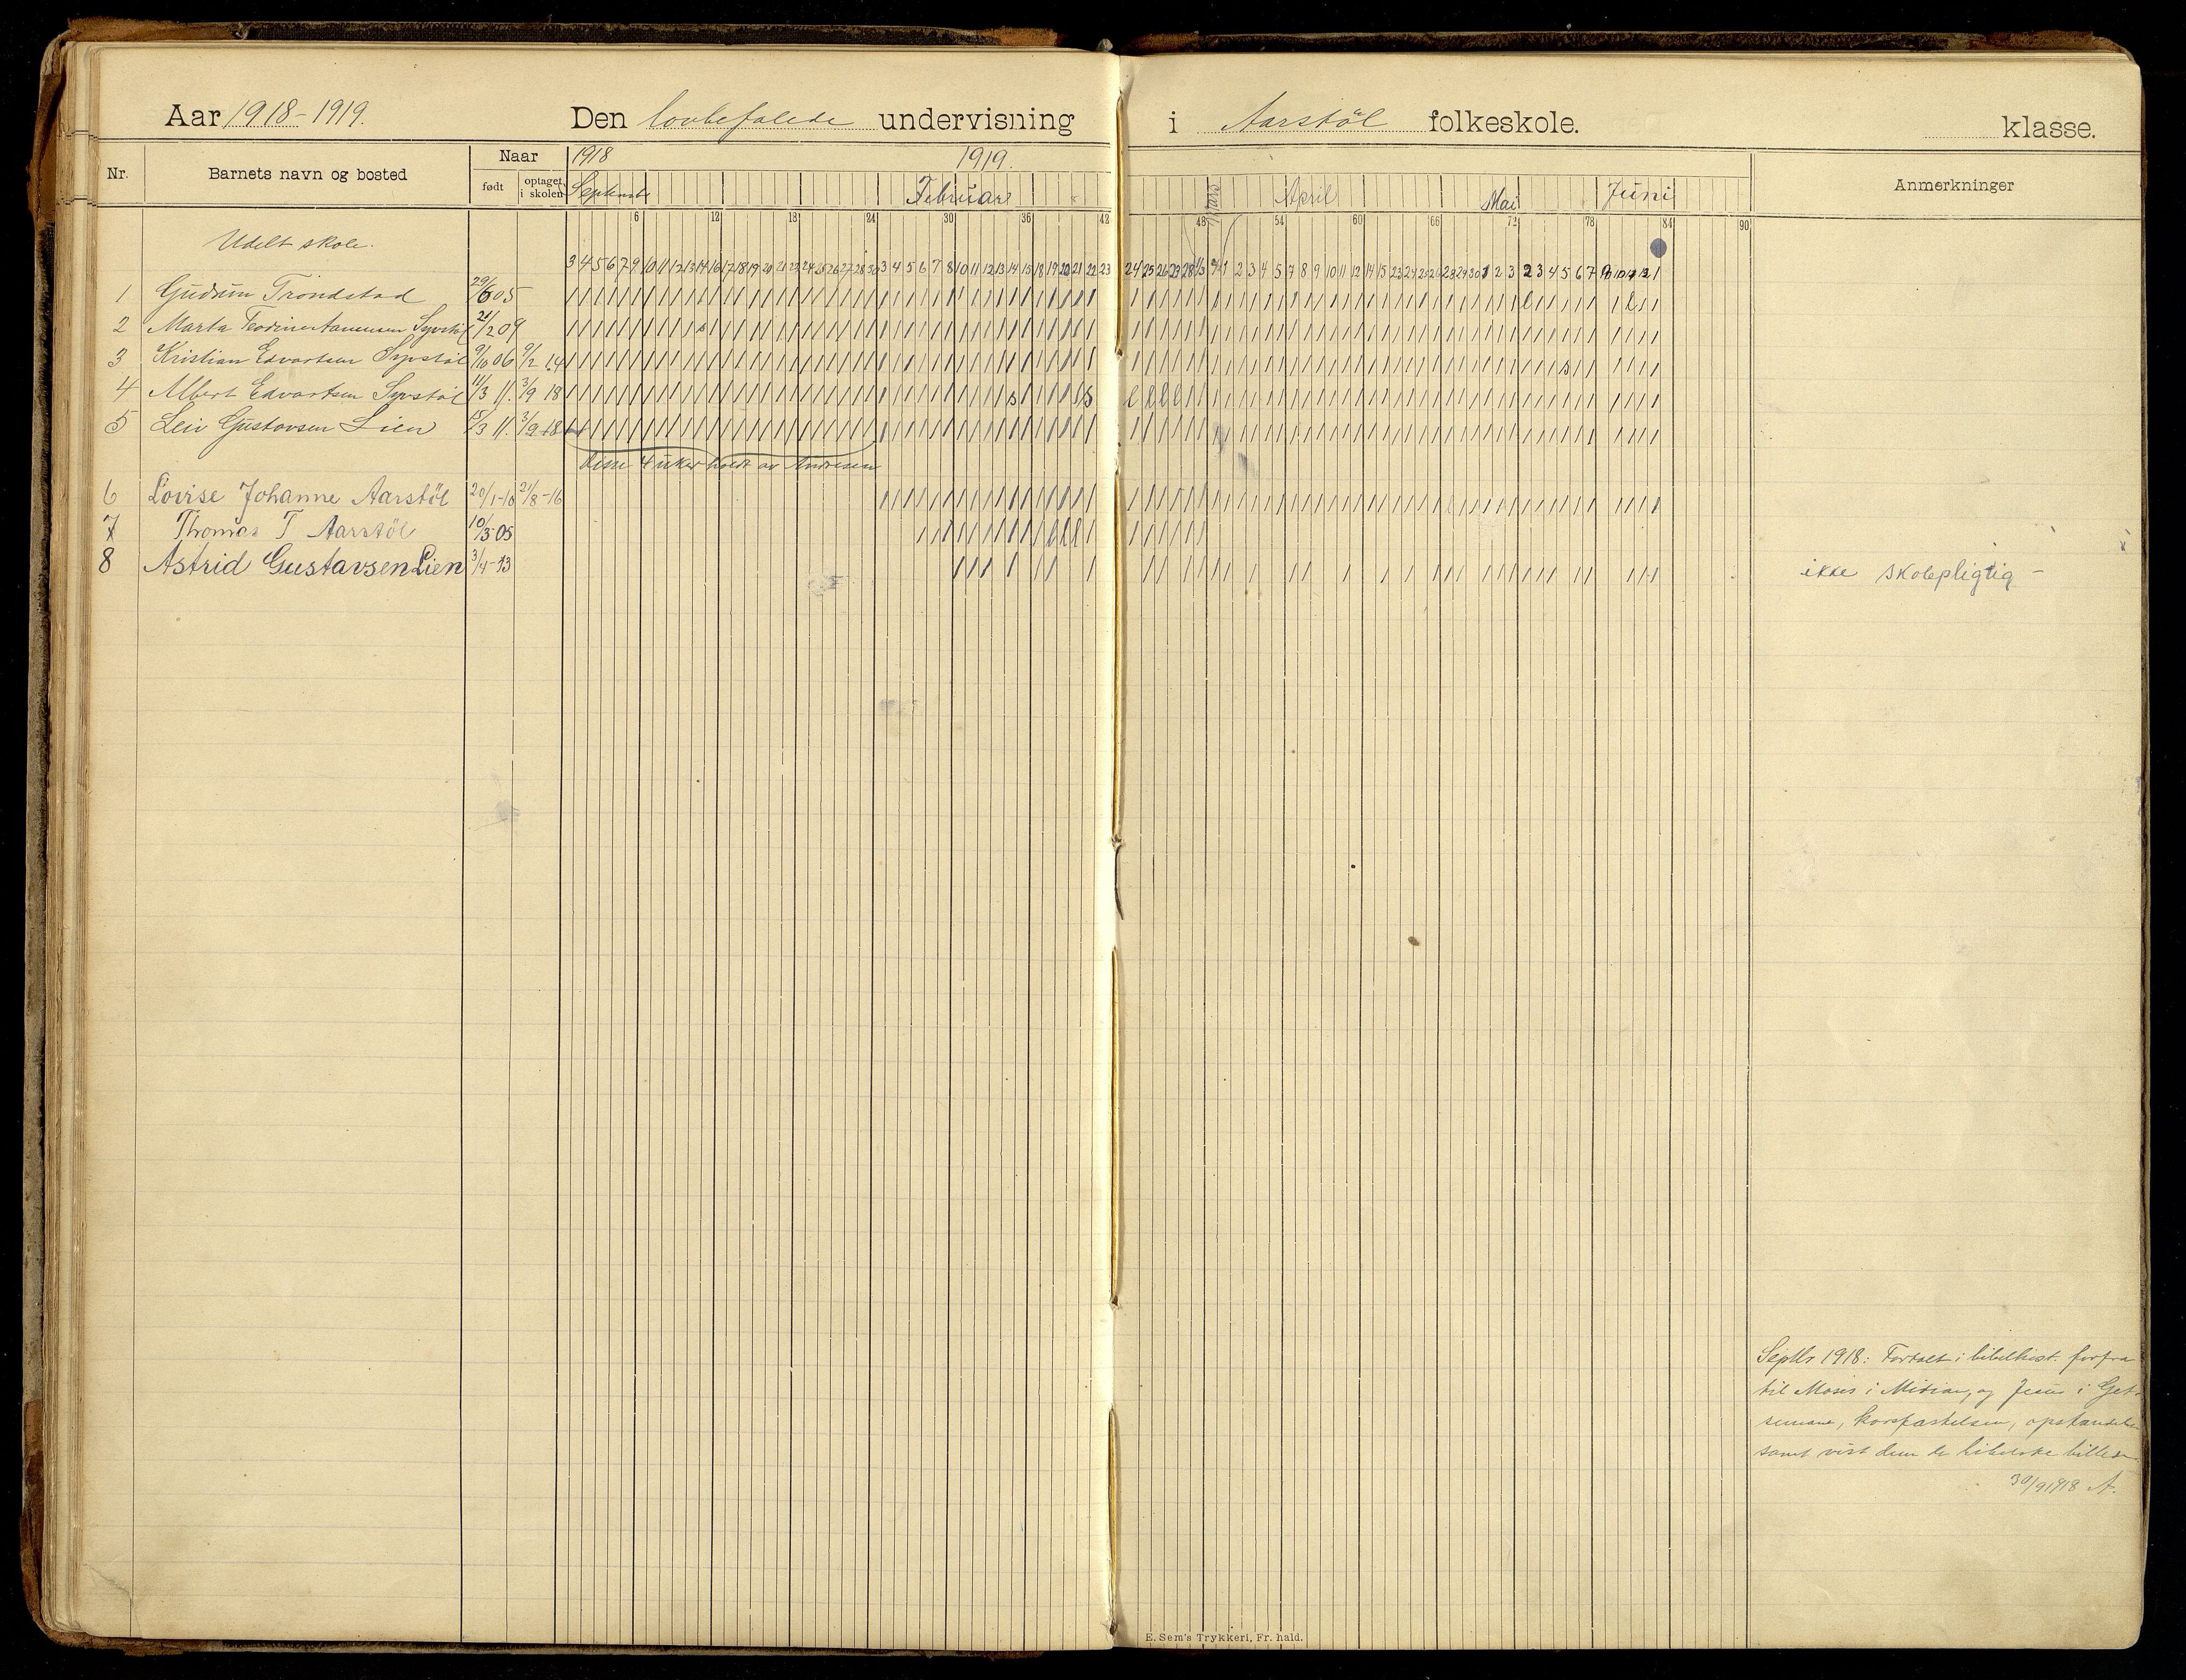 Aar 1918-1919. Den lovbefalede undervisning i Aarstöl folkeskole. klasse.
Nr. Barnets navn og bosted Naar 1918 1919. Anmerkninger
født optaget i skolen September Februar Mars April Mai Juni
6 12 18 24 30 36 42 48 54 60 66 72 78 84 90
Udelt skole.
3 4 5 6 7 9 10 11 12 13 14 16 17 18 19 20 21 23 24 25 26 27 28 30 3 4 5 6 7 8 10 11 12 13 14 15 18 19 20 21 22 23 24 25 26 27 28 1/3 1 2 3 4 5 7 8 9 10 11 12 14 15 23 24 25 26 28 29 30 1 2 3 2 3 4 5 6 7 10 11 12
1 Gudrun Trondstad 29/6 05
2 Marta Teodine Aanensen Syvstöl 21/2 09
3 Kristian Edvartsen Syvstöl 9/10 06 9/2 14
4 Albert Edvartsen Syvstöl 11/3 11. 3/9 18
5 Leiv Gustavsen Lien 15/3 11. 3/9 18
Disse 4 uker holdt av Andresen
6 Lovise Johanne Aarstöl 20/1-10 21/8-16
7 Thomas T Aarstöl 10/3-05
8 Astrid Gustavsen Lien 3/4-13 ikke skolepligtig -
Septbr 1918: Fortalt i bibelhist. forfra
til Moses i Midian, og Jesus i Get-
semane, korsfæstelsen, opstandelsen
samt vist dem de bibelske billeder
30/9 1918 A.
E. Sem's Trykkeri, Fr. hald.